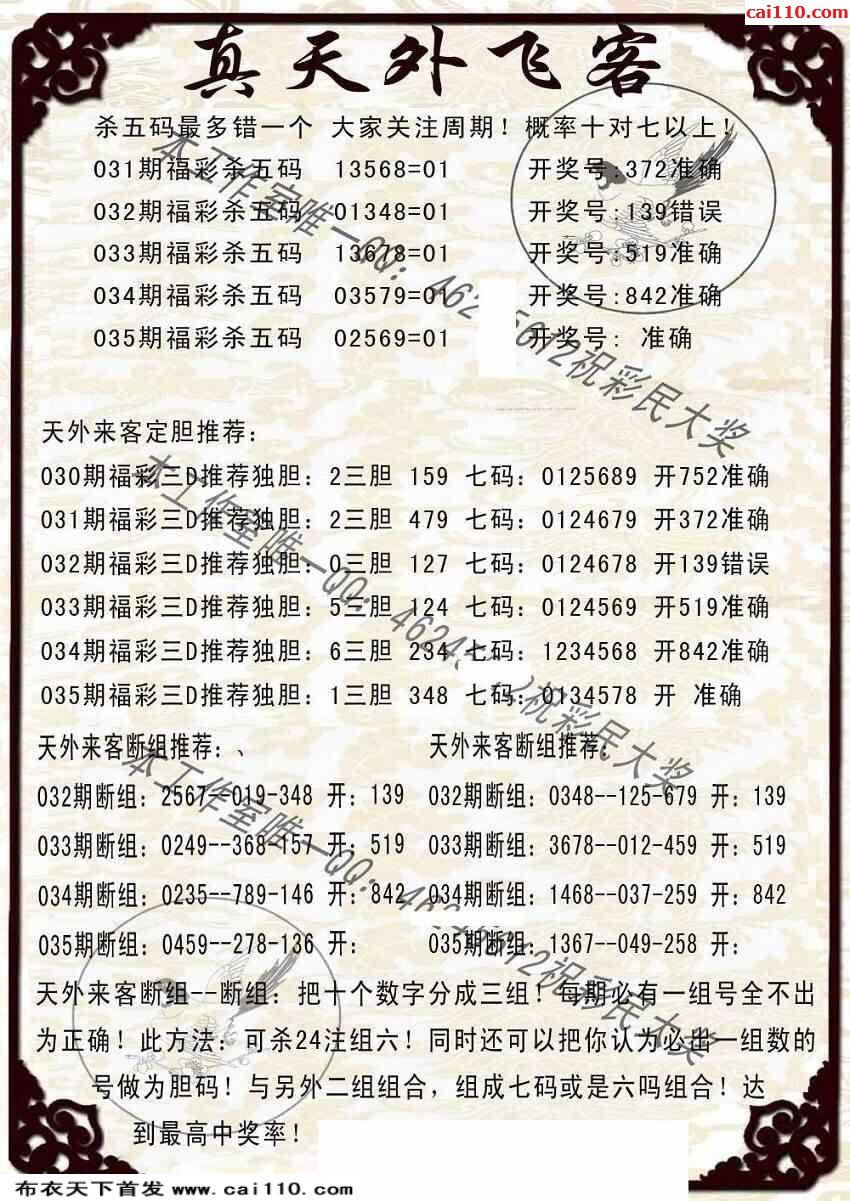 cai110.com
真天外飞客
杀五码最多错一个 大家关注周期！概率十对七以上！
031期福彩杀五码 13568=01 开奖号:372准确
032期福彩杀五码 01348=01 开奖号:139错误
033期福彩杀五码 13678=01 开奖号:519准确
034期福彩杀五码 03579=01 开奖号:842准确
035期福彩杀五码 02569=01 开奖号: 准确
天外来客定胆推荐：
030期福彩三D推荐独胆：2三胆 159 七码：0125689 开752准确
031期福彩三D推荐独胆：2三胆 479 七码：0124679 开372准确
032期福彩三D推荐独胆：0三胆 127 七码：0124678 开139错误
033期福彩三D推荐独胆：5三胆 124 七码：0124569 开519准确
034期福彩三D推荐独胆：6三胆 234 七码：1234568 开842准确
035期福彩三D推荐独胆：1三胆 348 七码：0134578 开 准确
天外来客断组推荐：、 天外来客断组推荐：
032期断组：2567--019-348 开：139 032期断组：0348--125-679 开：139
033期断组：0249--368-157 开：519 033期断组：3678--012-459 开：519
034期断组：0235--789-146 开：842 034期断组：1468--037-259 开：842
035期断组：0459--278-136 开： 035期断组：1367--049-258 开：
天外来客断组--断组：把十个数字分成三组！每期必有一组号全不出
为正确！此方法：可杀24注组六！同时还可以把你认为必出一组数的
号做为胆码！与另外二组组合，组成七码或是六吗组合！达
到最高中奖率！
本工作室唯一QQ：462 5612祝彩民大奖
本工作室唯一QQ：4624 2祝彩民大奖
本工作室唯一QQ：462 5612祝彩民大奖
布衣天下首发 www.cai110.com